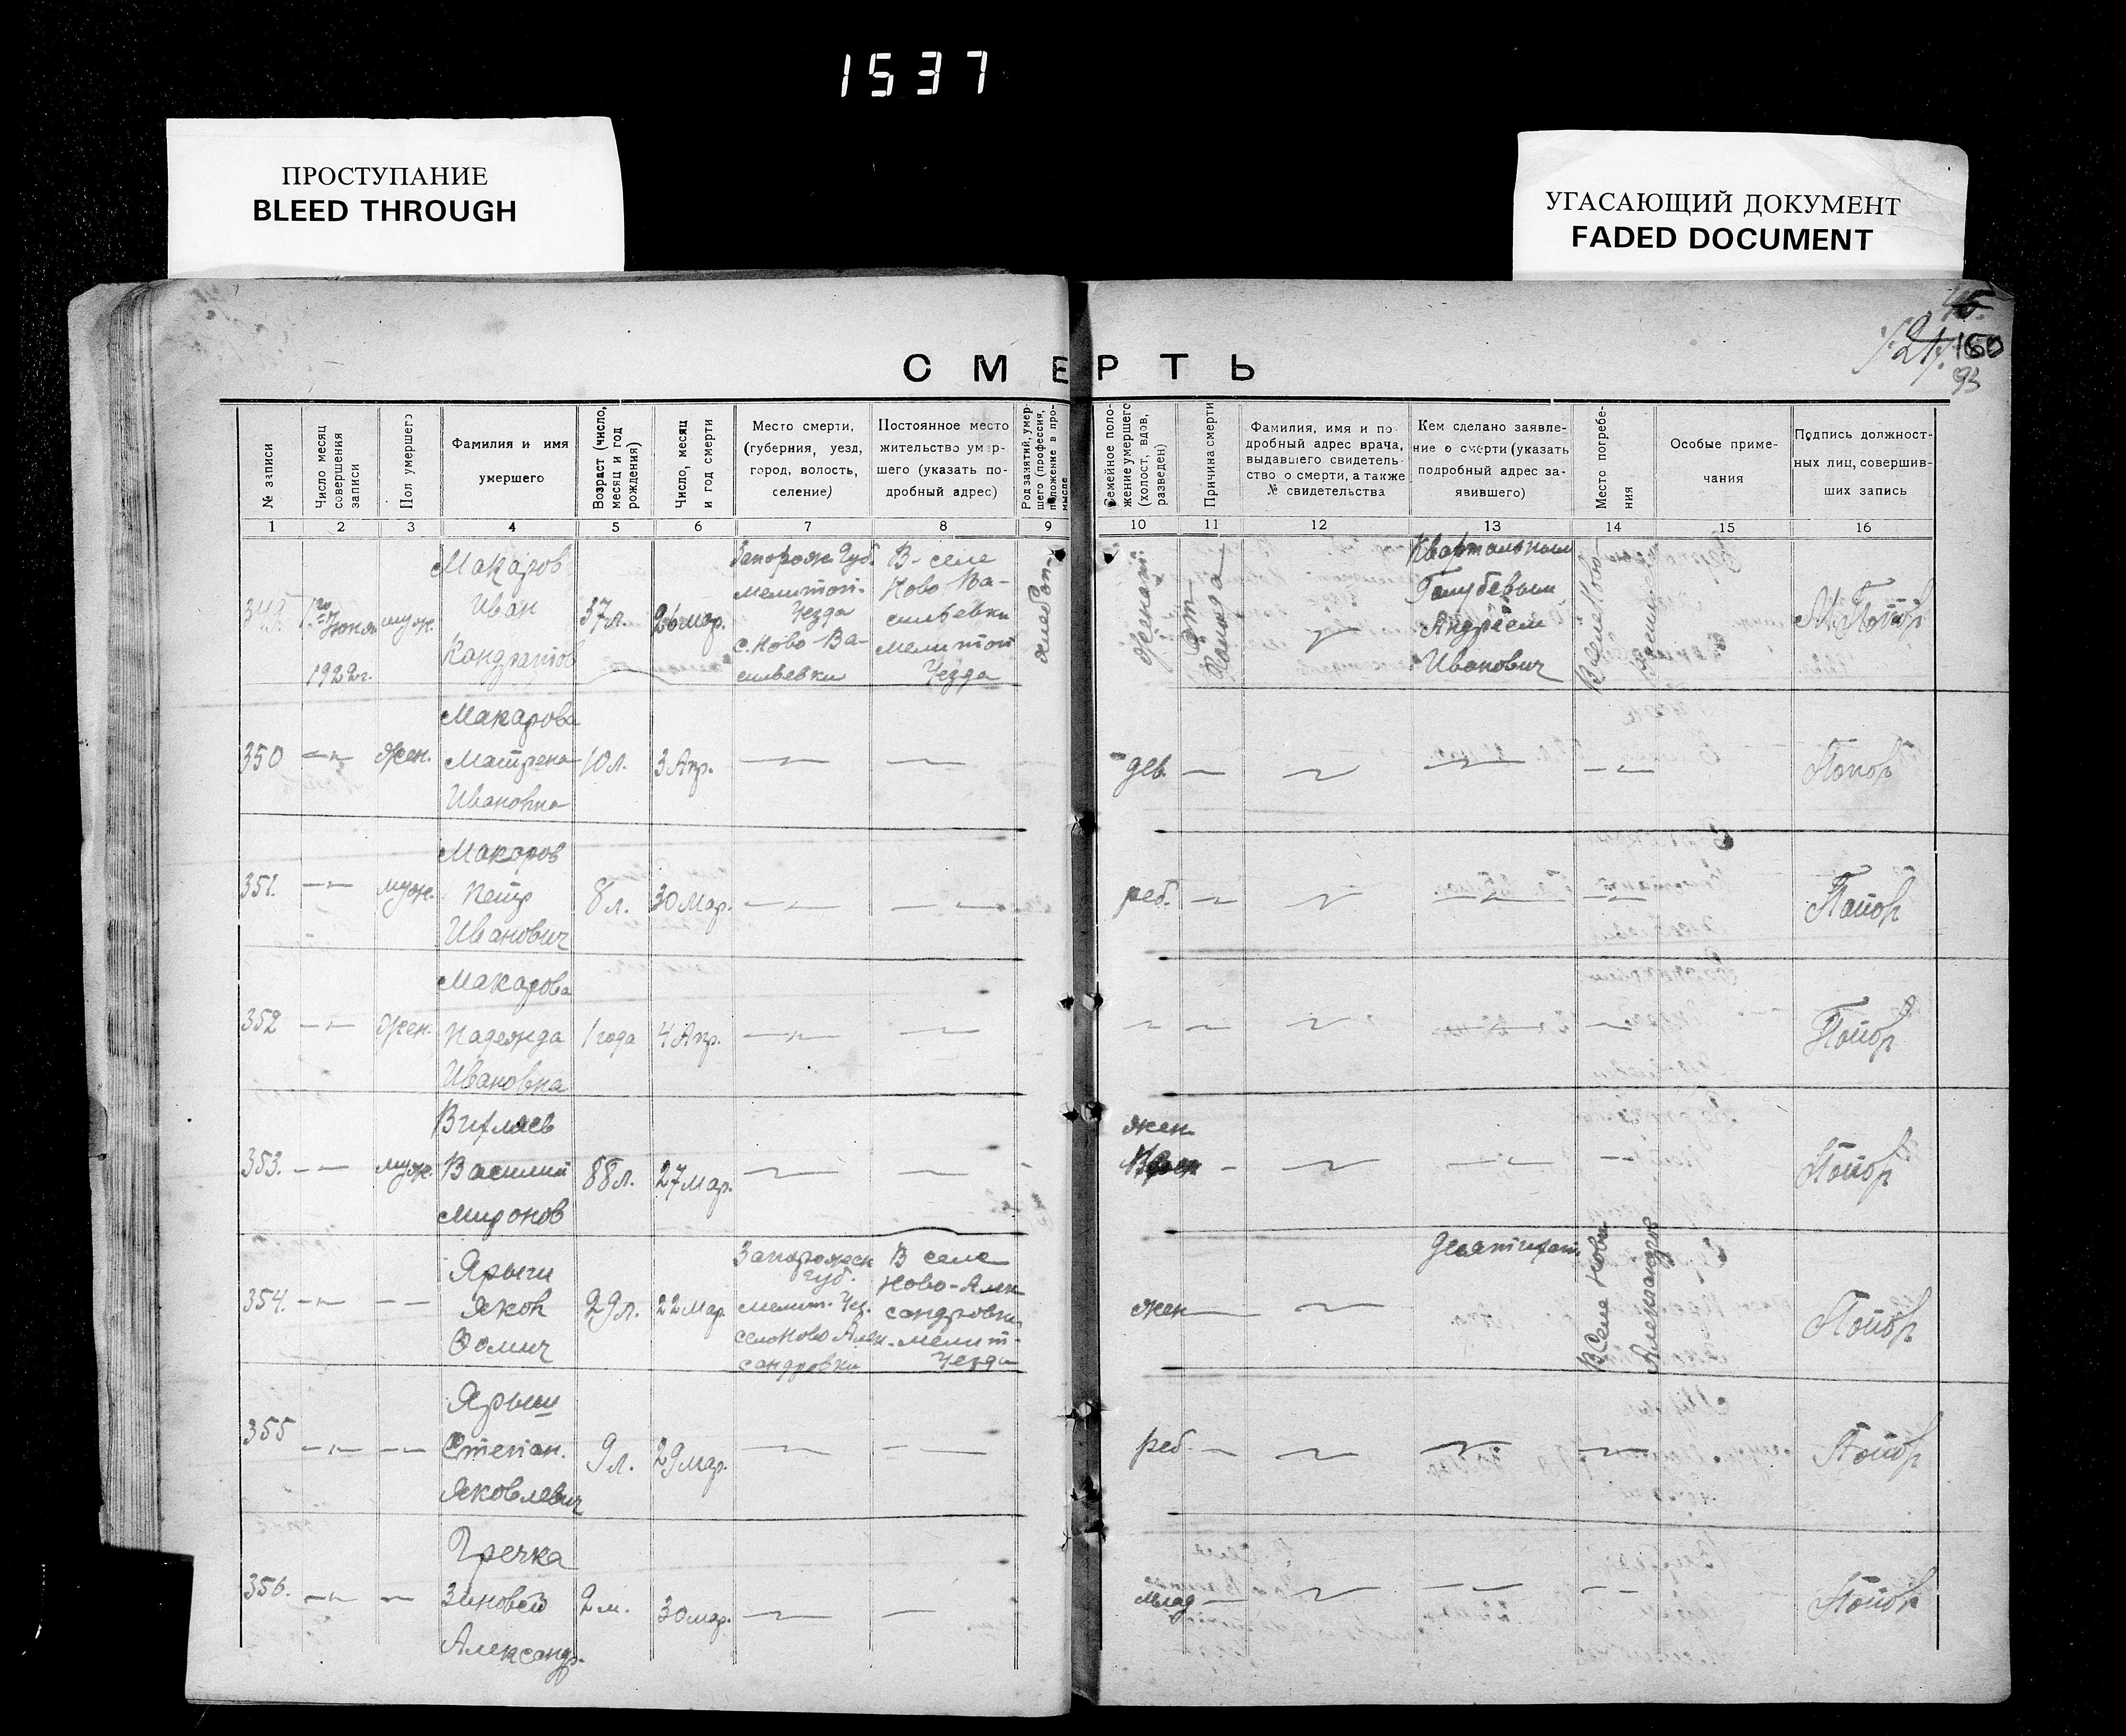 1537
ПРОСТУПАНИЕ
BLEED THROUGH
УГАСАЮЩИЙ ДОКУМЕНТ
FADED DOCUMENT
45
160
93
СМЕРТЬ
№ записи
Число месяц
совершения
записи
Пол умершего
Фамилия и имя
умершего
Возраст (число,
месяц и год
рождения)
Число, месяц
и год смерти
Место смерти,
(губерния, уезд,
город, волость,
селение)
Постоянное место
жительство умер-
шего (указать по-
дробный адрес)
Род занятий, умер-
шего (профессия,
положение в про-
мысле
Семейное поло-
жение умершего
(холост, вдов,
разведен)
Причина смерти
Фамилия, имя и по
дробный адрес врача,
выдавшего свидетель-
ство о смерти, а также
№ свидетельства
Кем сделано заявле-
ние о смерти (указать
подробный адрес за-
явившего)
Место погребе-
ния
Особые приме-
чания
Подпись должност-
ных лиц, совершив-
ших запись
1 2 3 4 5 6 7 8 9 10 11 12 13 14 15 16
349.
Июня
1922г.
муж.
Макаров
Иван
Кандратов
37л.
26 мар.
Запорож. Губ.
мелитоп.
Уезда
с. Ново-Ва-
сильевки
В- селе
Ново Ва-
сильевки
мелитоп
Уезда
хлебоп-
женат.
от
голода
Квартальным
Голубевым
Андреем
Иванович
В селе Ново-
Васильев
Попов
350
жен.
Макарова
Матрена
Ивановна
10 л.
3 Апр.
дев.
Попов
351.
муж.
Макаров
Петр
Иванович
8 л.
30 Мар.
реб.
Попов
352
жен.
Макарова
Надежда
Ивановна
1 года
4 Апр.
Попов
353.
муж.
Василий
Миронов
88л.
27 Мар.
жен
Попов
354.
Ярыш
Яков
Фомич
29л.
22 Мар.
Запорожск
губ.
мелит. Уез.
село Ново Алек
сандровки
В селе
Ново-Алек
сандровки
мелит-
Уезда
жен
В Селе Ново
Александров
Попов
355
Ярыш
Степан.
Яковлевич
9 л.
29 мар.
реб.
Попов
356.
Гречка
Зиновей
Александр.
2 м.
30 мар.
млад
Попов